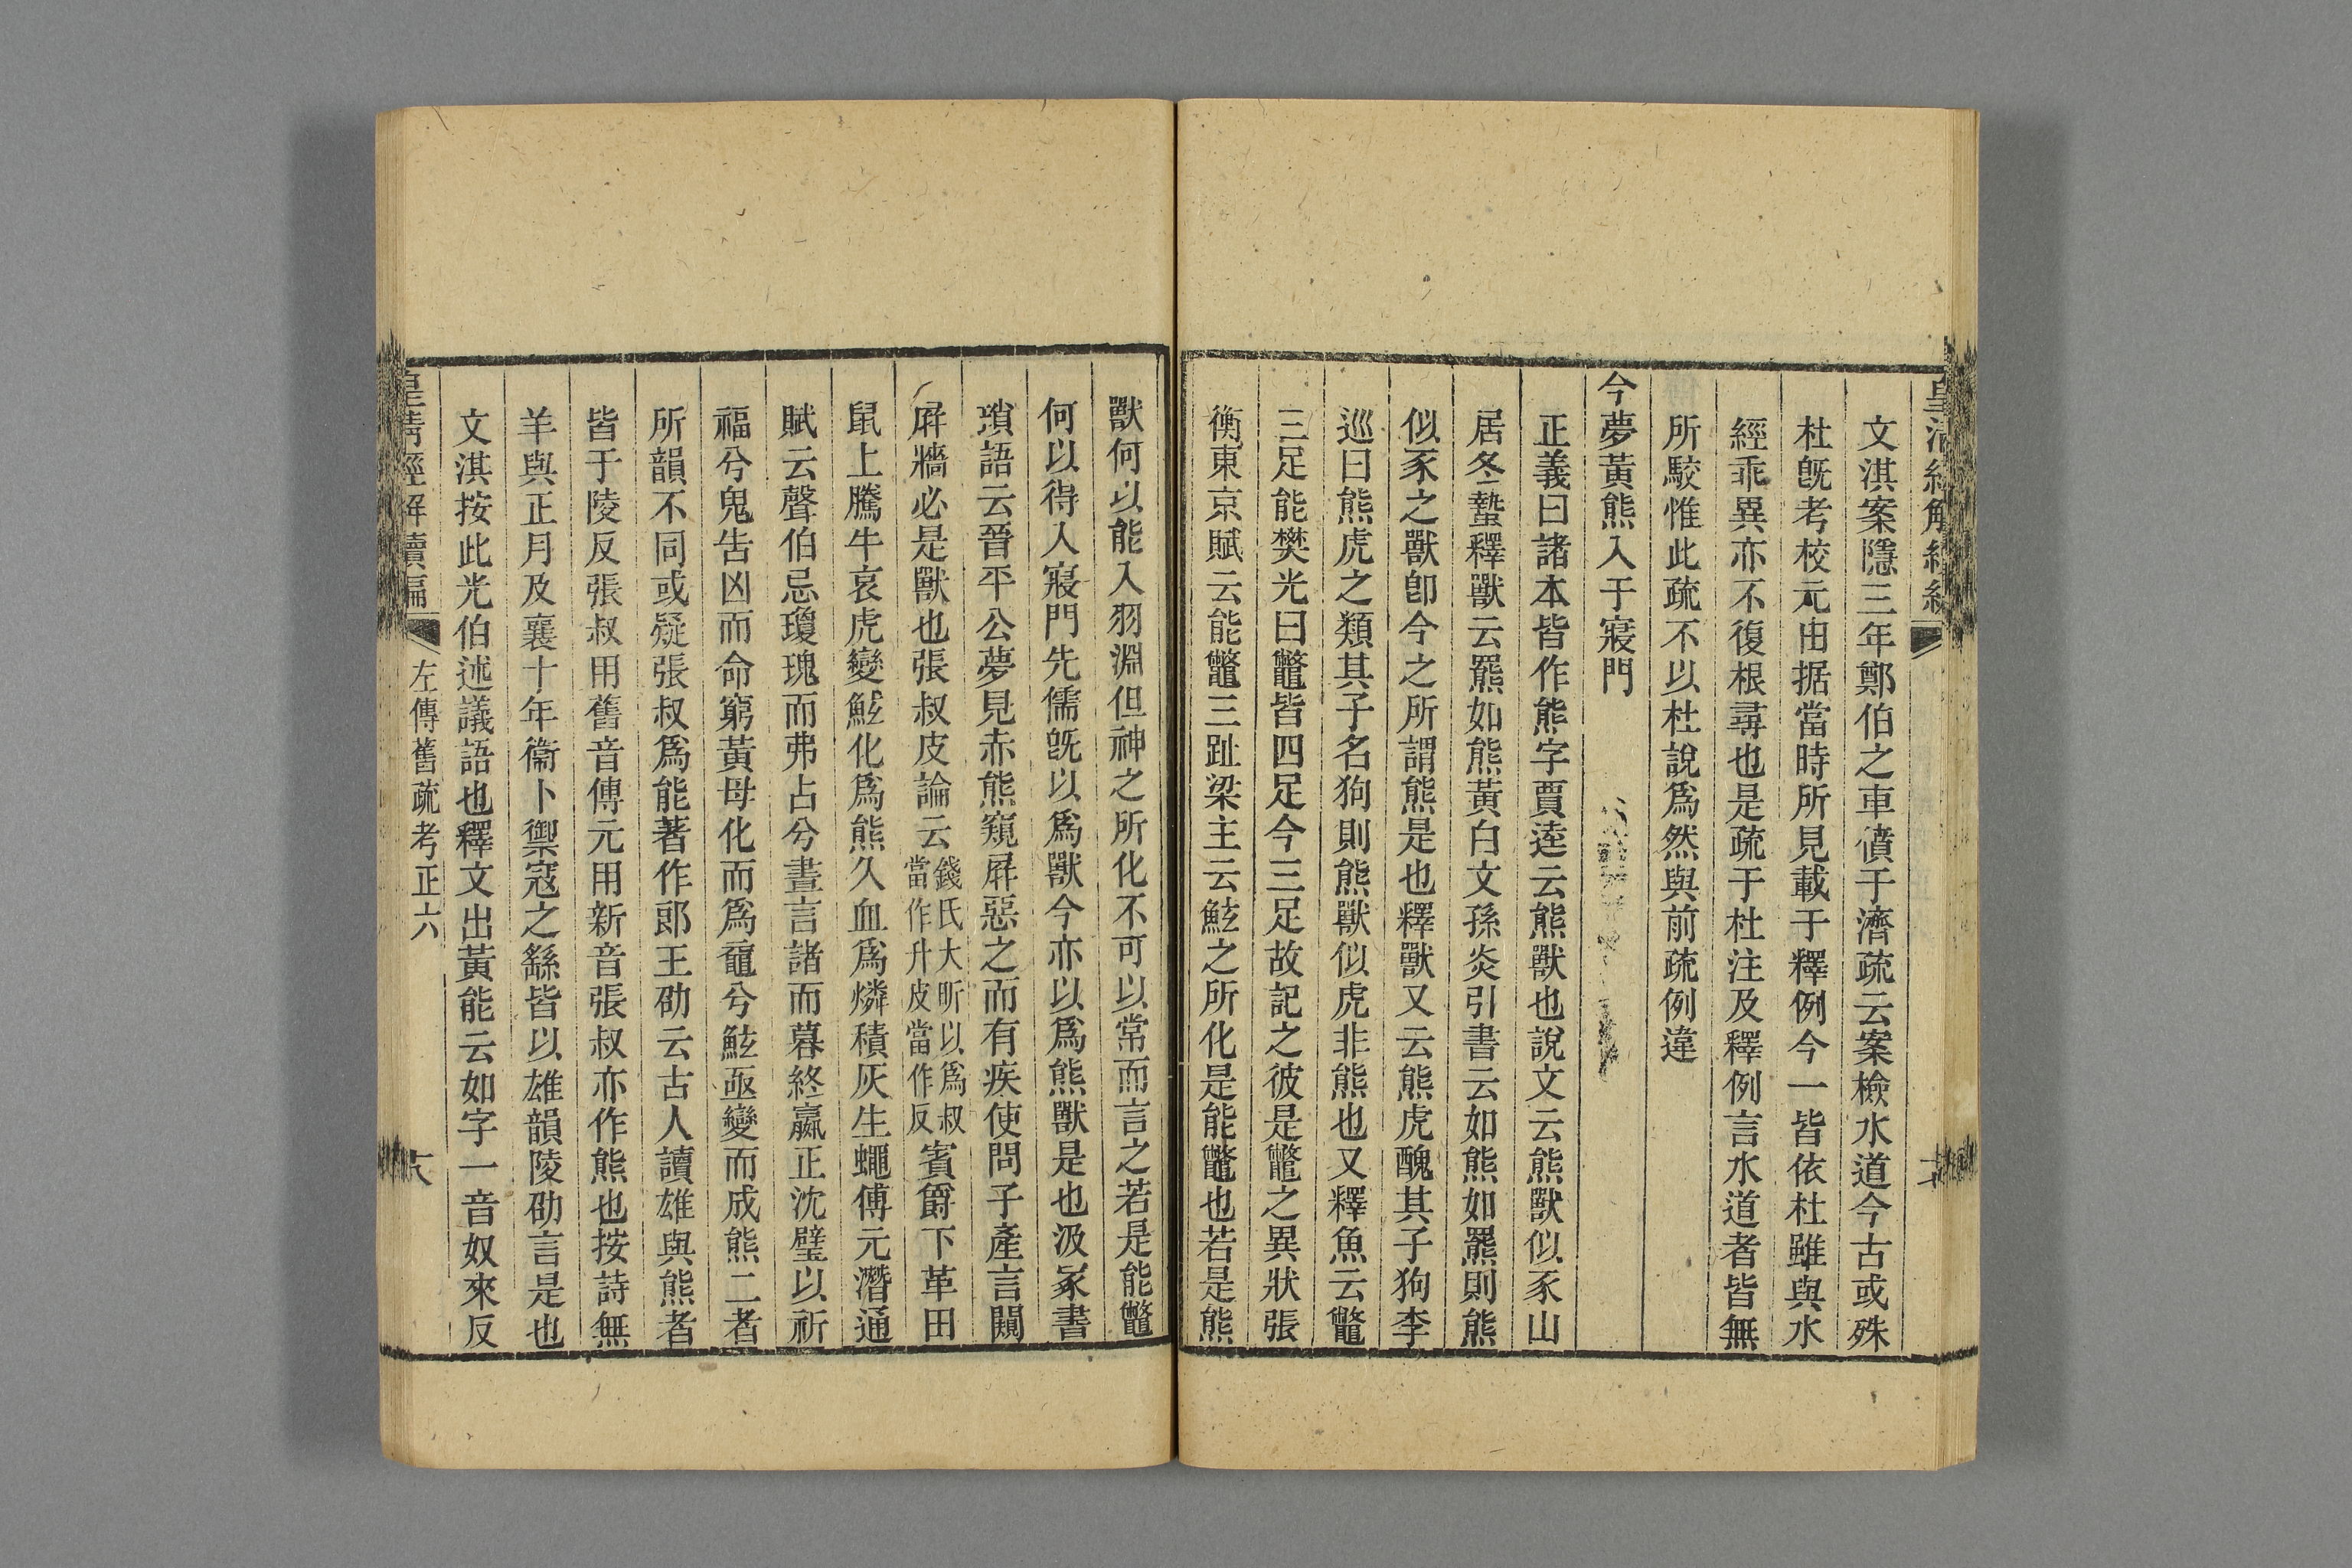 文淇案隱三年鄭伯之車僨于濟疏云案檢水道今古或殊
杜旣考校元由据當時所見載于釋例今一皆依杜雖與水
經乖異亦不復根尋也是疏于杜注及釋例言水道者皆無
所駮惟此疏不以杜說爲然與前疏例違
今夢黃熊入于寢門
正義曰諸本皆作熊字賈逵云熊獸也說文云熊獸似豕山
居冬蟄釋獸云羆如熊黃白文孫炎引書云如熊如羆則熊
似豕之獸卽今之所謂熊是也釋獸又云熊虎醜其子狗李
巡曰熊虎之類其子名狗則熊獸似虎非熊也又釋魚云鼈
三足能樊光曰鼈皆四足今三足故記之彼是鼈之異狀張
衡東京賦云能鼈三趾梁主云鮌之所化是能鼈也若是熊
獸何以能入羽淵但神之所化不可以常而言之若是能鼈
何以得入寢門先儒旣以爲獸今亦以爲熊獸是也汲冢書
瑣語云晉平公夢見赤熊窺屛惡之而有疾使問子產言闕
屛牆必是獸也張叔皮論云錢氏大昕以爲叔當作升皮當作反賓爵下革田
鼠上騰牛哀虎變鮌化爲熊久血爲燐積灰生蠅傅元潛通
賦云聲伯忌瓊瑰而弗占兮晝言諸而暮終嬴正沈璧以祈
福兮鬼告凶而命窮黃母化而爲黿兮鮌亟變而成熊二者
所韻不同或疑張叔爲能著作郎王劭云古人讀雄與熊者
皆于陵反張叔用舊音傳元用新音張叔亦作熊也按詩無
羊與正月及襄十年衞卜禦寇之繇皆以雄韻陵劭言是也
文淇按此光伯述議語也釋文出黃能云如字一音奴來反
皇淸經解續編
左傳舊疏考正六